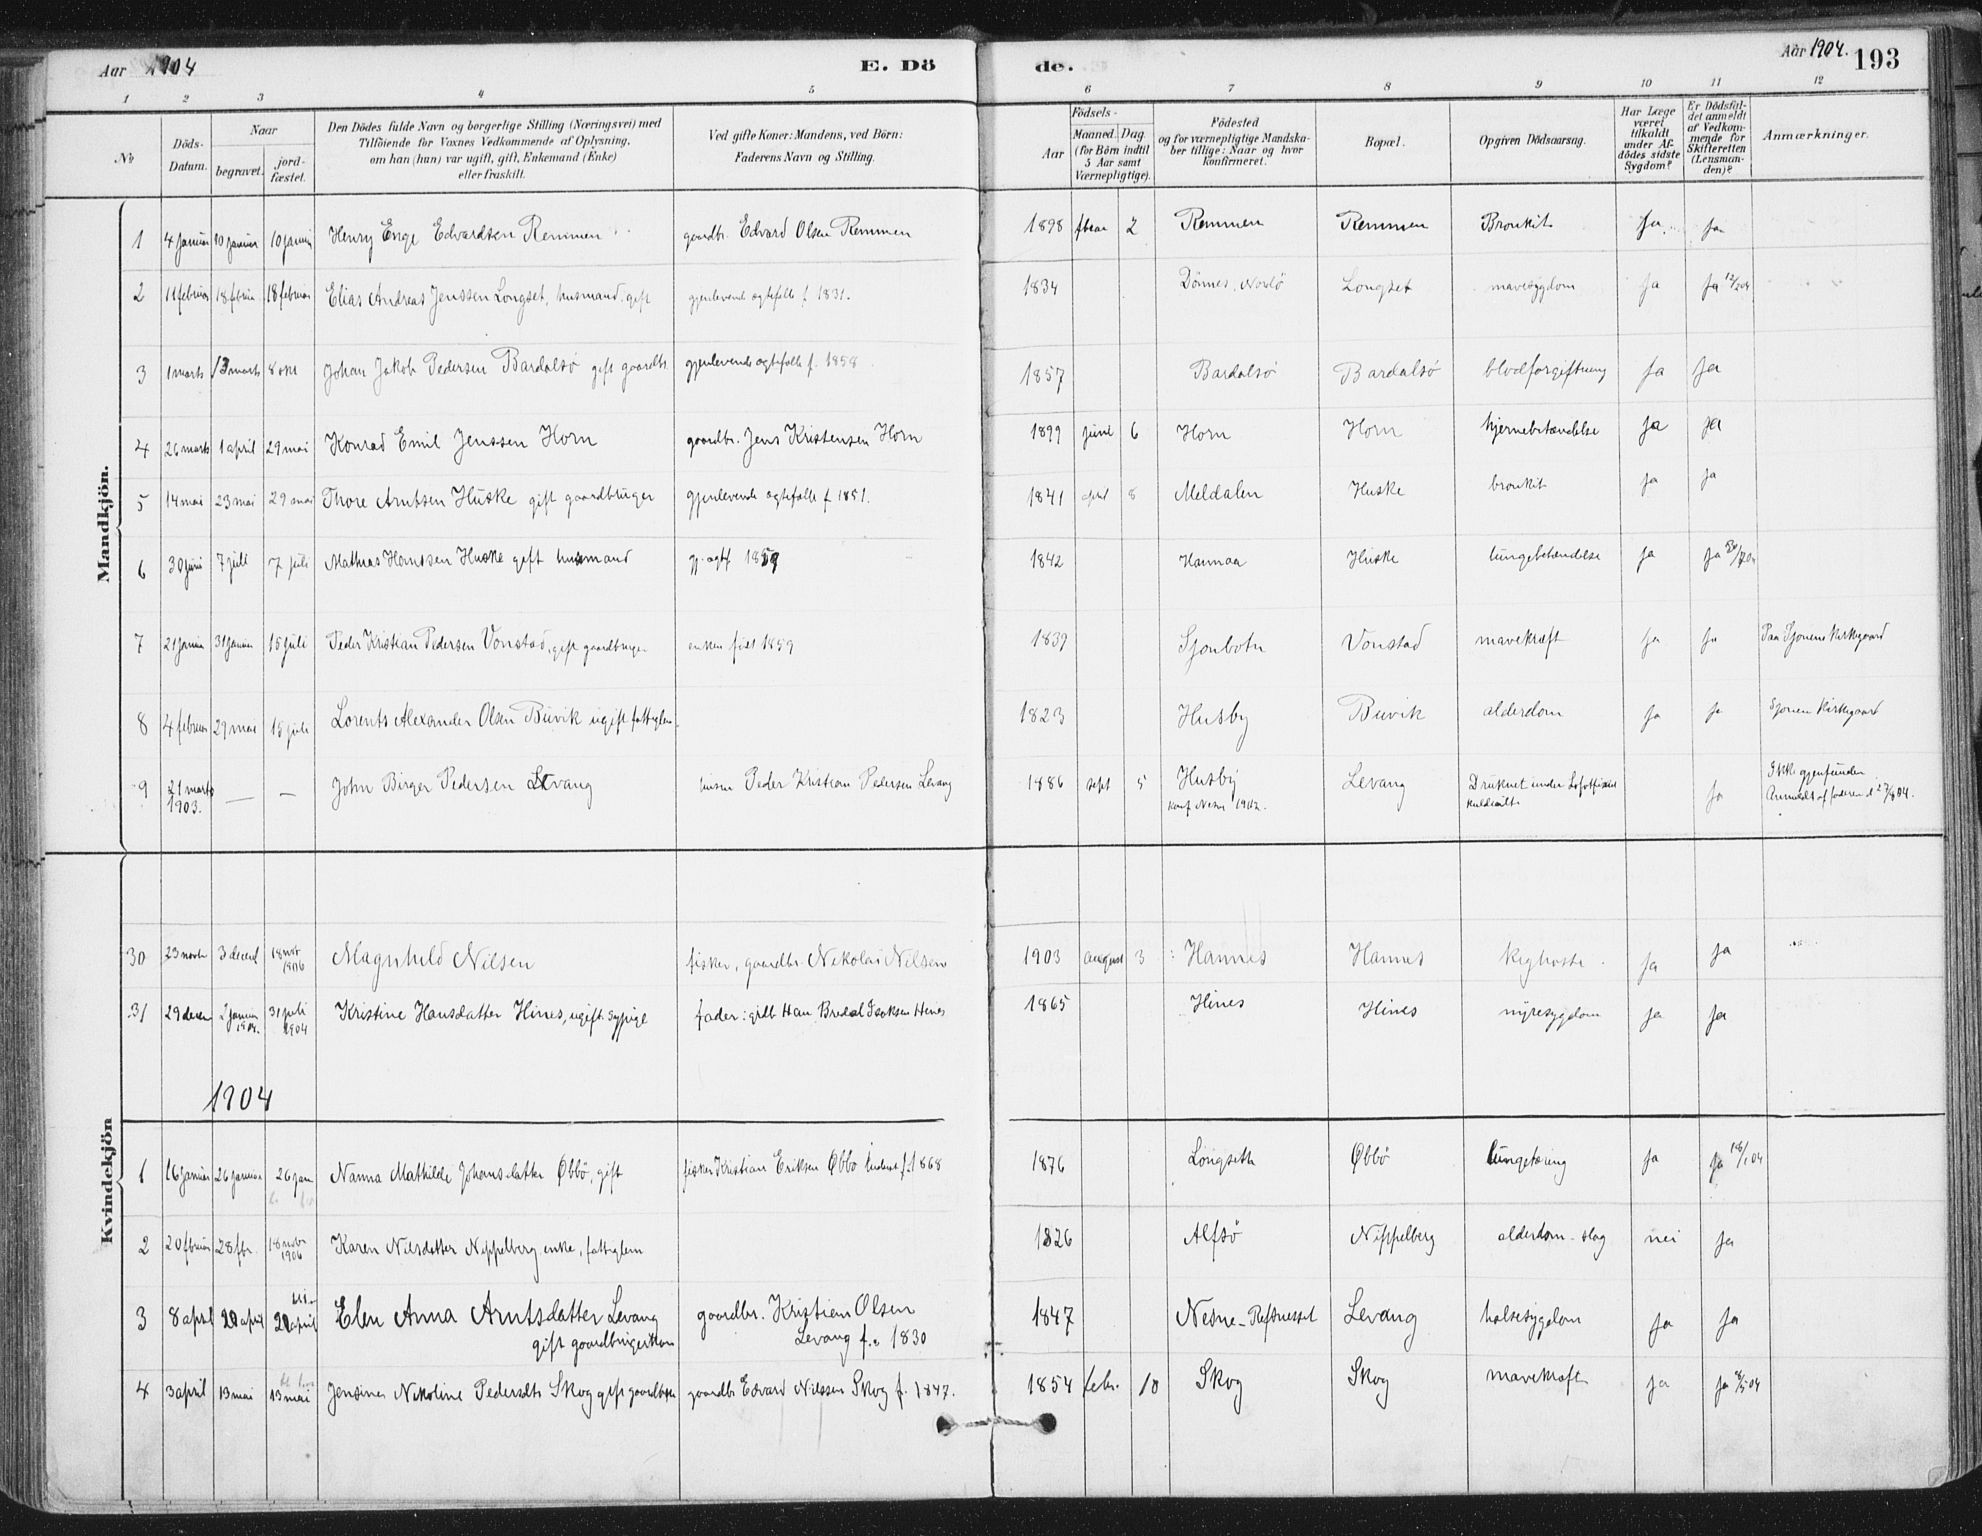 Aar 1904 E. Dö de. Aar 1904. 193
1 2 3 4 5 6 7 8 9 10 11 12
No
Döds-Datum.
Naar
begravet.
jord-fæstet.
Den Dödes fulde Navn og borgerlige Stilling (Næringsvei) med
Tilföiende for Voxnes Vedkommende af Oplysning,
om han (hun) var ugift, gift, Enkemand (Enke)
eller fraskilt.
Ved gifte Koner: Mandens, ved Börn:
Faderens Navn og Stilling.
Födsels-
Aar
Maaned. Dag.
(for Börn indtil
5 Aar samt
Værnepligtige).
Födested
og for værnepligtige Mandska-
ber tillige: Naar og hvor
konfirmeret.
Bopæl.
Opgiven Dödsaarsag.
Har Læge
været
tilkaldt
under Af-
dödes sidste
Sygdom?
Er Dödsfal-
det anmeldt
af Vedkom-
mende for
Skifteretten
(Lensman-
den)?
Anmærkninger.
Mandkjön.
1 4 januar 10 januar 10 januar Henry Enge Edvardsen Remmen gaardbr. Edvard Olsen Remmen 1898 2 Remmen Remmen Bronkit Ja ja
2 11 februar 18 februar 18 februar Elias Andreas Jenssen Longset, husmand, gift gjenlevende ægtefælle f. 1831. 1834 Dönnes, Nordö Longset mavesygdom ja ja 12/2 04
3 1 marts 13 marts 8 okt Johan Jakob Pedersen Bardalsö gift gaardbr. gjenlevende ægtefælle f. 1858. 1857 Bardalsö Bardalsö blodforgiftning ja ja
4 26 marts 1 april 29 mai Konrad Emil Jenssen Horn gaardbr. Jens Kristensen Horn 1899 juni 6 Horn Horn hjernebetændelse ja ja
5 14 mai 23 mai 29 mai Thore Arntsen Huske gift gaardbruger gjenlevende ægtefælle f 1851. 1841 april 8 Meldalen Huske bronkit ja ja
6 30 juni 7 juli 7 juli Mathias Hanssen Huske gift husmand gj. ægtf. 1859 1842 Huske lungebetændelse ja ja
7 21 januar 31 januar 15 juli Peder Kristian Pedersen Vonstad, gift gaardbruger enken född 1859 1839 Sjonbotn Vonstad mavekræft ja ja Paa Sjonens Kirkegaard
8 4 februar 29 mai 15 juli Lorents Alexander Olsen Buvik ugift fattiglem 1823 Husby Buvik alderdom ja ja Sjonens Kirkegaard
9 21 marts 1903. — — John Birger Pedersen Levang husm Peder Kristian Pedersen Levang 1886 sept 5 Husby Levang Druknet under Lofotfisket ja Ikke gjenfunden
konf. Nesne 1902. kuldseilt. Anmeldt af faderen d 27/8 04.
Kvindekjön
30 23 novb 3 decebr 18 nov 1906 Magnhild Nilsen fisker, gaardbr. Nikolai Nilsen 1903 august 3 Hannes Hannes kighoste ja ja
31 29 decbr 2 januar 1904. 31 juli 1904 Kristine Hansdatter Hines, ugift sypige fader: grdb Han Bredal Isaksen Hines 1865 Hines Hines nyresygdom ja ja
1904
1 16 januar 26 januar 26 jan Nanna Mathilde Johansdatter Öbbö, gift fisker Kristian Eriksen Öbbö f. 1868 1876 Longseth Öbbö lungetæring ja ja 18/1 04
2 20 februar 28 fbr. 18 nov 1906 Karen Nilsdatter Nippelberg enke, fattiglem 1826 Alfsö Nippelberg alderdom - slag nei ja
3 8 april 20 april 20 april Elen Anna Arntsdatter Levang gaardbr. Kristian Olsen 1847 Nesne - Refsnesset Levang halsesygdom ja ja
gift gaardbrugerkone Levang f. 1830
4 3 april 13 mai 13 mai Jensine Nikoline Pedersdtr Skog gift gaardbrk gaardbr Edvard Nilssen Skog f. 1847. 1854 febr. 10 Skog Skog mavekræft ja ja